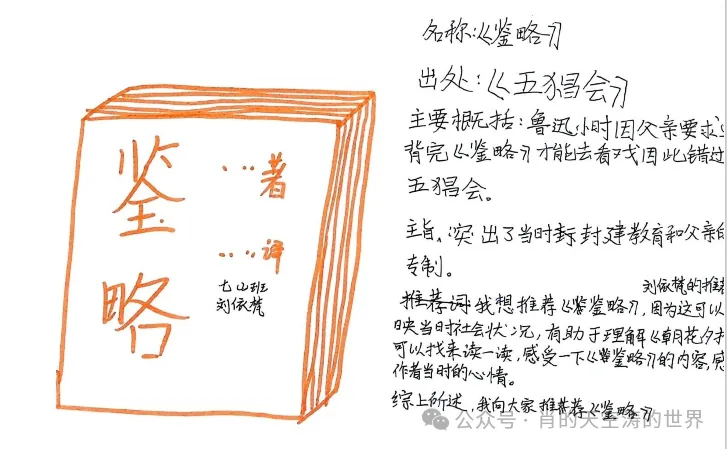 鉴略
…著
…译
七山班
刘依梵
名称:《鉴略》
出处:《五猖会》
主要概括:鲁迅小时因父亲要求
背完《鉴略》才能去看戏因此错过
五猖会。
主旨:突出了当时封封建教育和父亲的
专制。
刘依梵的推荐
推荐词:我想推荐《鉴略》,因为这可以
映当时社会状况,有助于理解《朝花夕
可以找来读一读,感受一下《鉴略》的内容,感
作者当时的心情。
综上所述,我向大家推荐《鉴略》
公众号·肖的大王涛的世界